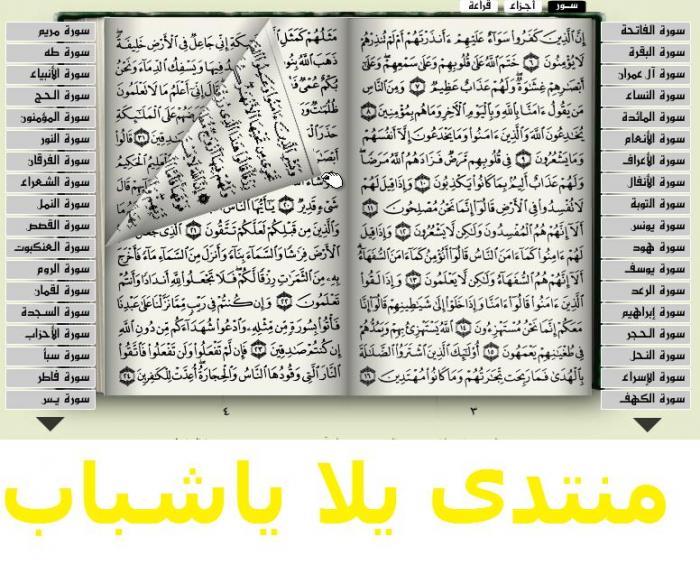 سور أجزاء قراءة
سورة الفاتحة
سورة البقرة
سورة آل عمران
سورة النساء
سورة المائدة
سورة الأنعام
سورة الأعراف
سورة الأنفال
سورة التوبة
سورة يونس
سورة هود
سورة يوسف
سورة الرعد
سورة إبراهيم
سورة الحجر
سورة النحل
سورة الإسراء
سورة الكهف
إِنَّ الَّذِينَ كَفَرُوا سَوَاءٌ عَلَيْهِمْ ءَأَنذَرْتَهُمْ أَمْ لَمْ تُنذِرْهُمْ
لَا يُؤْمِنُونَ ٦ خَتَمَ اللَّهُ عَلَىٰ قُلُوبِهِمْ وَعَلَىٰ سَمْعِهِمْ وَعَلَىٰ
أَبْصَارِهِمْ غِشَاوَةٌ وَلَهُمْ عَذَابٌ عَظِيمٌ ٧ وَمِنَ النَّاسِ
مَن يَقُولُ ءَامَنَّا بِاللَّهِ وَبِالْيَوْمِ الْآخِرِ وَمَا هُم بِمُؤْمِنِينَ ٨
يُخَادِعُونَ اللَّهَ وَالَّذِينَ ءَامَنُوا وَمَا يَخْدَعُونَ إِلَّا أَنفُسَهُمْ
وَمَا يَشْعُرُونَ ٩ فِي قُلُوبِهِم مَّرَضٌ فَزَادَهُمُ اللَّهُ مَرَضًا
وَلَهُمْ عَذَابٌ أَلِيمٌ بِمَا كَانُوا يَكْذِبُونَ ١٠ وَإِذَا قِيلَ لَهُمْ
لَا تُفْسِدُوا فِي الْأَرْضِ قَالُوا إِنَّمَا نَحْنُ مُصْلِحُونَ ١١
أَلَا إِنَّهُمْ هُمُ الْمُفْسِدُونَ وَلَٰكِن لَّا يَشْعُرُونَ ١٢ وَإِذَا قِيلَ
لَهُمْ ءَامِنُوا كَمَا ءَامَنَ النَّاسُ قَالُوا أَنُؤْمِنُ كَمَا ءَامَنَ السُّفَهَاءُ
أَلَا إِنَّهُمْ هُمُ السُّفَهَاءُ وَلَٰكِن لَّا يَعْلَمُونَ ١٣ وَإِذَا لَقُوا
الَّذِينَ ءَامَنُوا قَالُوا ءَامَنَّا وَإِذَا خَلَوْا إِلَىٰ شَيَاطِينِهِمْ قَالُوا إِنَّا
مَعَكُمْ إِنَّمَا نَحْنُ مُسْتَهْزِءُونَ ١٤ اللَّهُ يَسْتَهْزِئُ بِهِمْ وَيَمُدُّهُمْ
فِي طُغْيَانِهِمْ يَعْمَهُونَ ١٥ أُولَٰئِكَ الَّذِينَ اشْتَرَوُا الضَّلَالَةَ
بِالْهُدَىٰ فَمَا رَبِحَت تِّجَارَتُهُمْ وَمَا كَانُوا مُهْتَدِينَ ١٦
٣
مَثَلُهُمْ كَمَثَلِ
ذَهَبَ اللَّهُ
شَيْءٍ قَدِيرٌ ٢٠ يَا أَيُّهَا النَّاسُ
وَالَّذِينَ مِن قَبْلِكُمْ لَعَلَّكُمْ تَتَّقُونَ ٢١ الَّذِي جَعَلَ
الْأَرْضَ فِرَاشًا وَالسَّمَاءَ بِنَاءً وَأَنزَلَ مِنَ السَّمَاءِ مَاءً فَأَخْرَجَ
بِهِ مِنَ الثَّمَرَاتِ رِزْقًا لَّكُمْ فَلَا تَجْعَلُوا لِلَّهِ أَندَادًا وَأَنتُمْ
تَعْلَمُونَ ٢٢ وَإِن كُنتُمْ فِي رَيْبٍ مِّمَّا نَزَّلْنَا عَلَىٰ عَبْدِنَا
فَأْتُوا بِسُورَةٍ مِّن مِّثْلِهِ وَادْعُوا شُهَدَاءَكُم مِّن دُونِ اللَّهِ
إِن كُنتُمْ صَادِقِينَ ٢٣ فَإِن لَّمْ تَفْعَلُوا وَلَن تَفْعَلُوا فَاتَّقُوا
النَّارَ الَّتِي وَقُودُهَا النَّاسُ وَالْحِجَارَةُ أُعِدَّتْ لِلْكَافِرِينَ ٢٤
٤
سورة مريم
سورة طه
سورة الأنبياء
سورة الحج
سورة المؤمنون
سورة النور
سورة الفرقان
سورة الشعراء
سورة النمل
سورة القصص
سورة العنكبوت
سورة الروم
سورة لقمان
سورة السجدة
سورة الأحزاب
سورة سبأ
سورة فاطر
سورة يس
منتدى يلا ياشباب